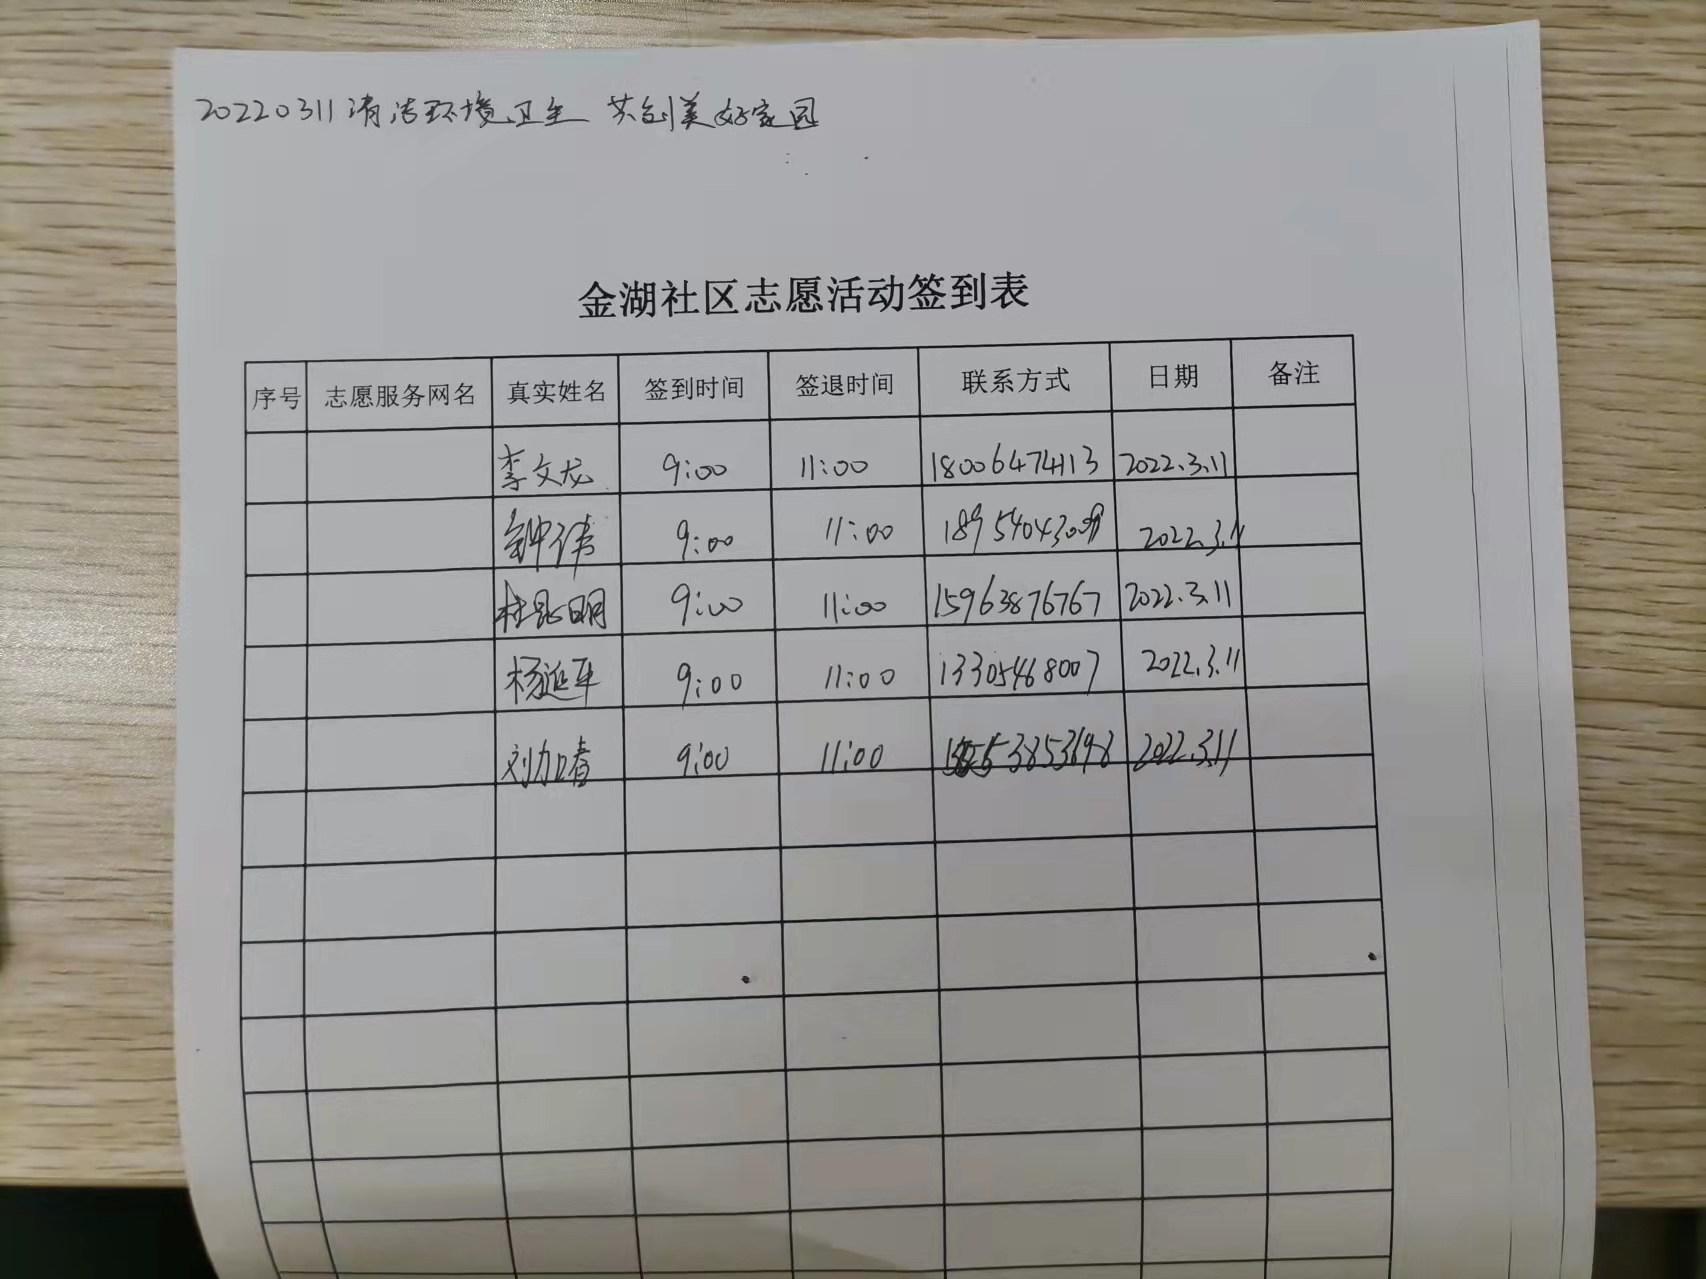 20220311清洁环境卫生 共创美好家园
金湖社区志愿活动签到表
序号 志愿服务网名 真实姓名 签到时间 签退时间 联系方式 日期 备注
李文龙 9:00 11:00 18006474113 2022.3.11
钟伟 9:00 11:00 2022.3.11
杜昆明 9:00 11:00 15963876767 2022.3.11
杨延平 9:00 11:00 13305468007 2022.3.11
刘加春 9:00 11:00 2022.3.11